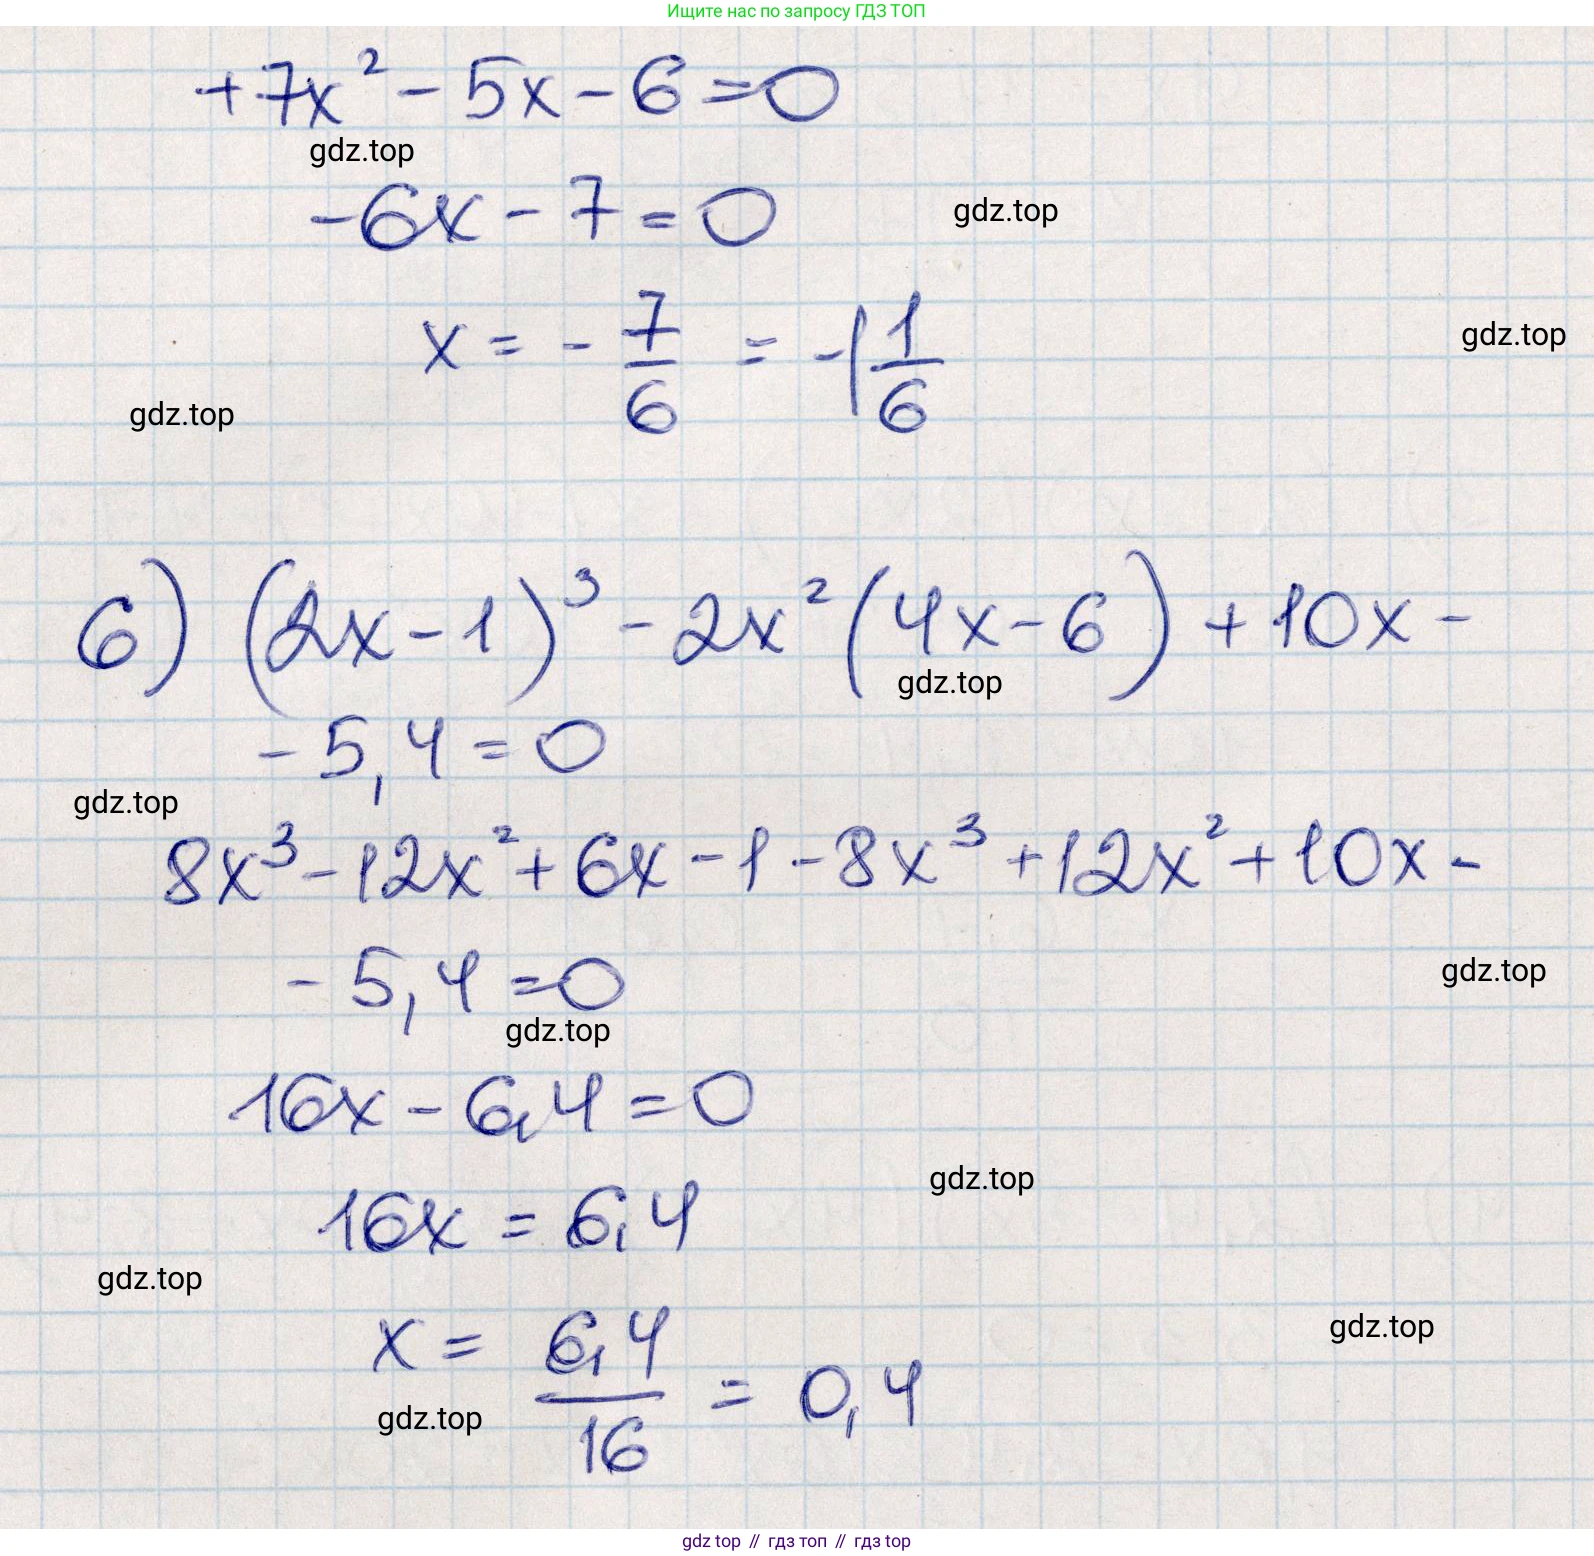 Ищите нас по запросу ГДЗ ТОП
+7x² - 5x - 6 = 0
gdz.top
-6x - 7 = 0
gdz.top
x = - 7/6 = -1 1/6
gdz.top
gdz.top
6) (2x - 1)³ - 2x² (4x - 6) + 10x -
gdz.top
- 5,4 = 0
gdz.top
8x³ - 12x² + 6x - 1 - 8x³ + 12x² + 10x -
- 5,4 = 0
gdz.top
gdz.top
16x - 6,4 = 0
gdz.top
16x = 6,4
gdz.top
x = 6,4/16 = 0,4
gdz.top
gdz.top
gdz top // гдз топ // гдз top